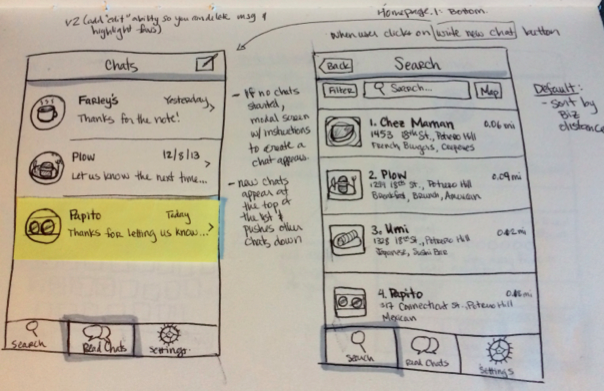 v2 (add "edit" ability so you can delete msg &
highlight favs)
Homepage.1. Bottom
When user clicks on write new chat button
Chats
Farley's
Yesterday
Thanks for the note!
Plow
12/8/13
Let us know the next time...
Papito
Today
Thanks for letting us know...
Search
Read Chats
Settings
- If no chats
started,
modal screen
w/ instructions
to create a
chat appears.
- new chats
appear at
the top of
the list &
pushes other
chats down
Back
Search
Filter
Search...
Map
1. Chez Maman
0.06 mi
1453 18th St., Potrero Hill
French, Burgers, Crepes
2. Plow
0.09 mi
1299 18th St., Potrero Hill
Breakfast, Brunch, American
3. Umi
0.12 mi
1328 18th St., Potrero Hill
Japanese, Sushi Bar
4. Papito
317 Connecticut St., Potrero Hill
Mexican
Search
Read Chats
Settings
Default:
- sort by
Biz
distance